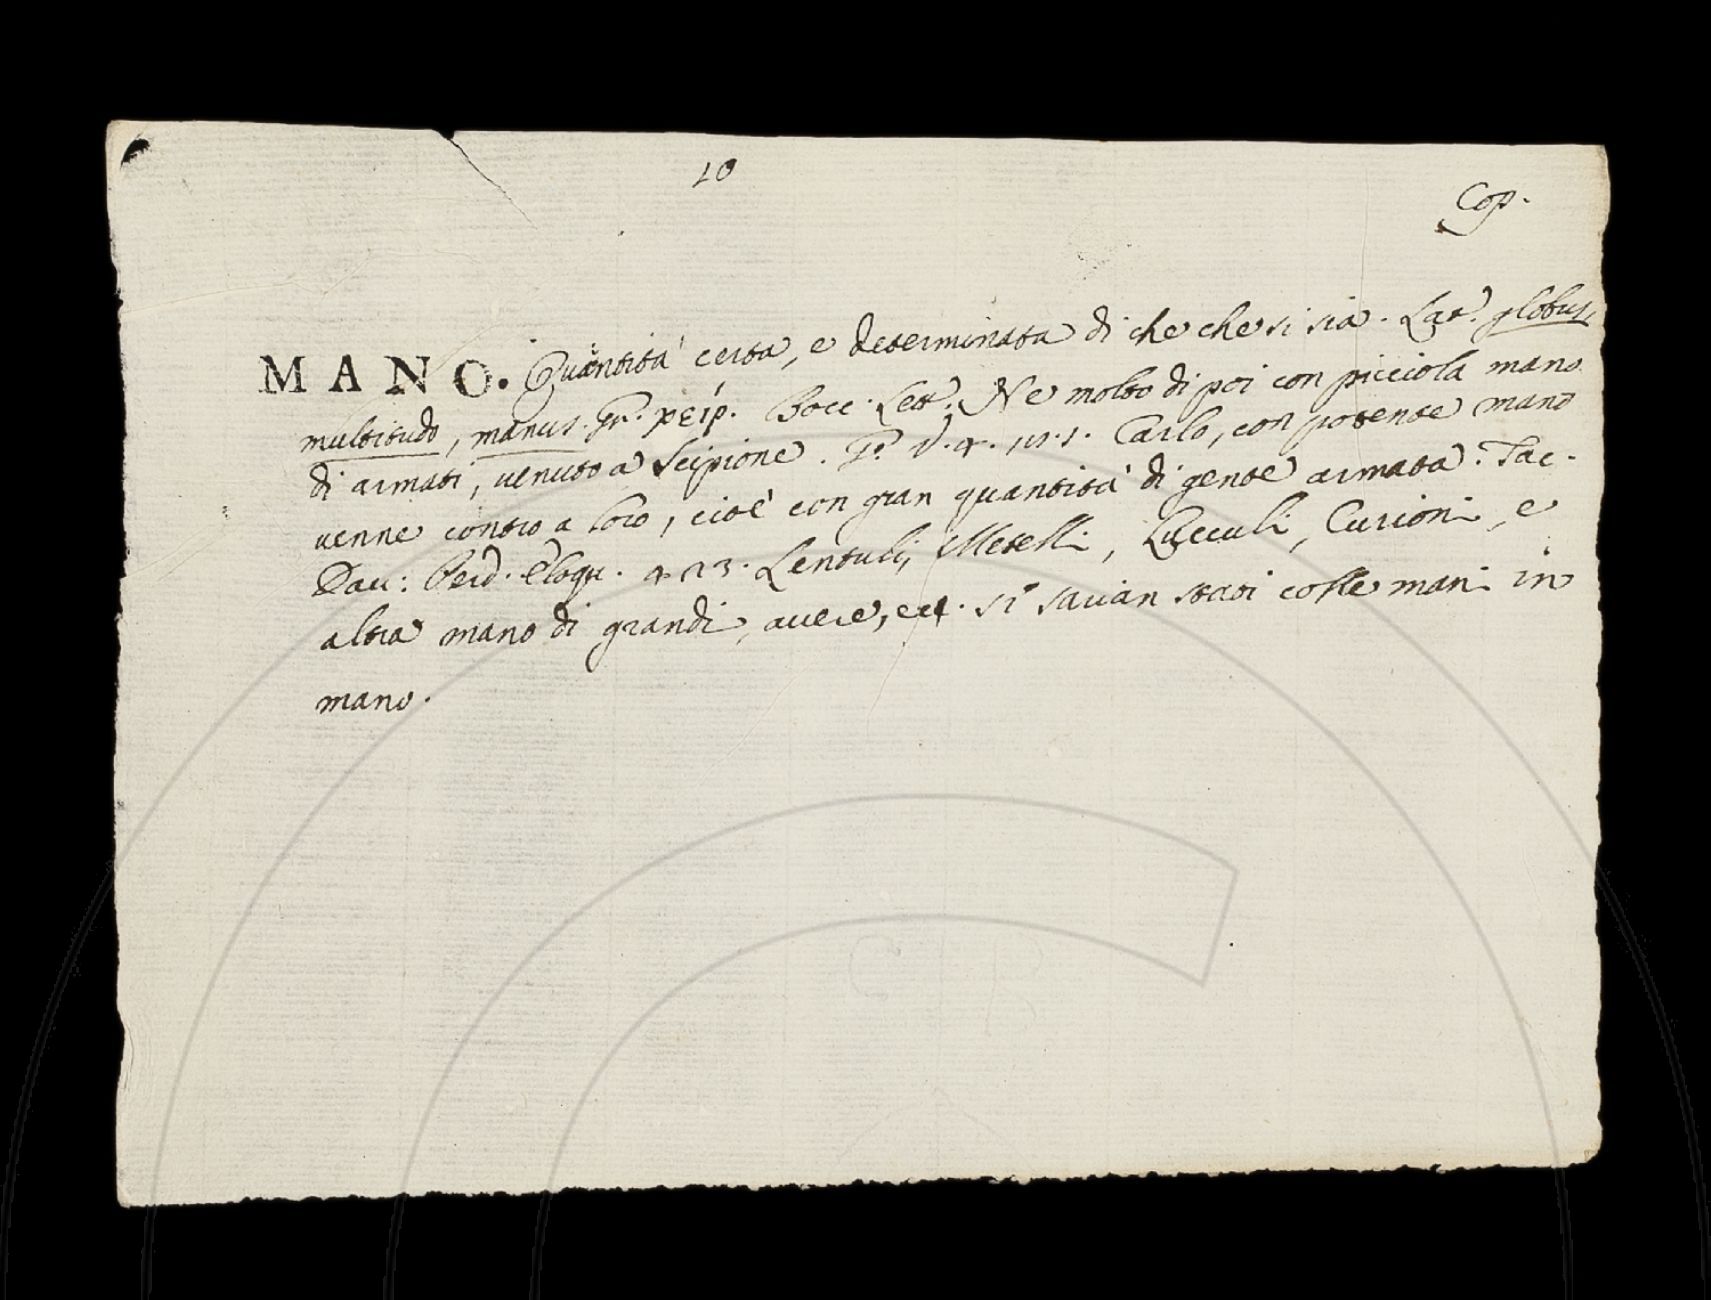 10
Cop.
MANO. Quantità certa, e determinata di che che si sia. Lat. globus,
multitudo, manus. Gr. χείρ. Bocc. Lett. Ne molto di poi con picciola mano
di armati, venuto a Scipione. G. V. 4. 15. 1. Carlo, con potente mano
venne contro a loro, cioè con gran quantità di gente armata. Tac.
Dav: Perd. eloqu. 423. Lentuli, Metelli, Lucculi, Curioni, e
altra mano di grandi, avere, ec. si savian stati colle mani in
mano.